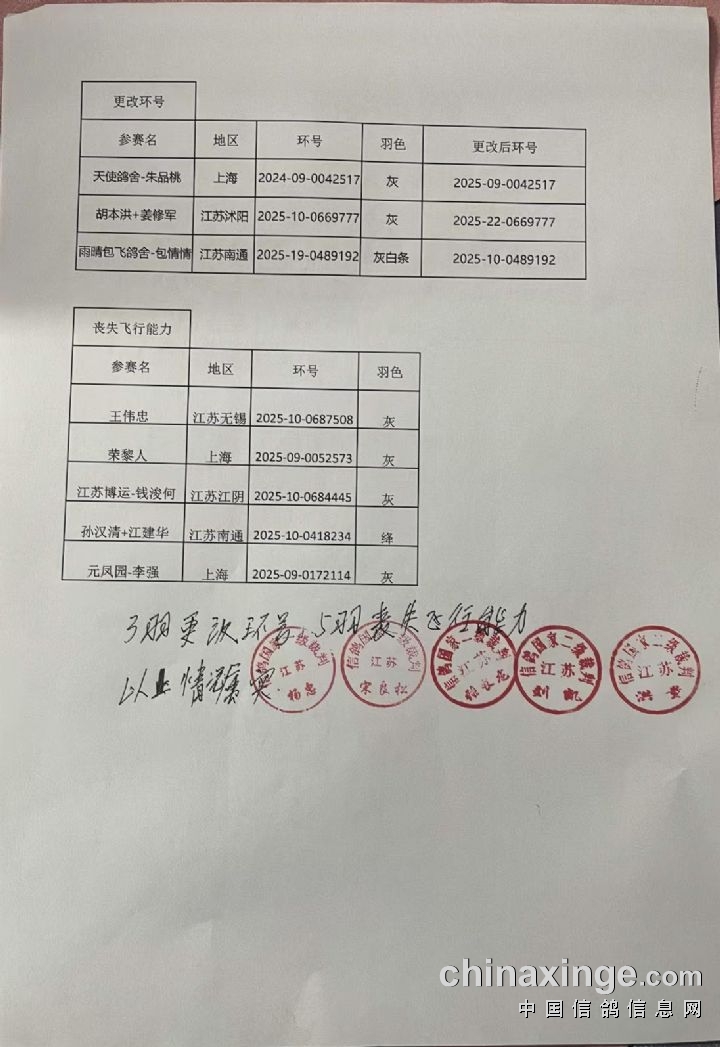 更改环号
参赛名 地区 环号 羽色 更改后环号
天使鸽舍-朱品桃 上海 2024-09-0042517 灰 2025-09-0042517
胡本洪+姜修军 江苏沭阳 2025-10-0669777 灰 2025-22-0669777
雨晴包飞鸽舍-包情情 江苏南通 2025-19-0489192 灰白条 2025-10-0489192
丧失飞行能力
参赛名 地区 环号 羽色
王伟忠 江苏无锡 2025-10-0687508 灰
荣黎人 上海 2025-09-0052573 灰
江苏博运-钱浚何 江苏江阴 2025-10-0684445 灰
孙汉清+江建华 江苏南通 2025-10-0418234 绛
元凤园-李强 上海 2025-09-0172114 灰
3羽更改环号 5羽丧失飞行能力
以上情况属实
信鸽国家二级裁判 江苏
信鸽国家二级裁判 江苏 宋良松
信鸽国家二级裁判 江苏
信鸽国家二级裁判 江苏 刘凯
信鸽国家二级裁判 江苏
chinaxinge.com
中国信鸽信息网